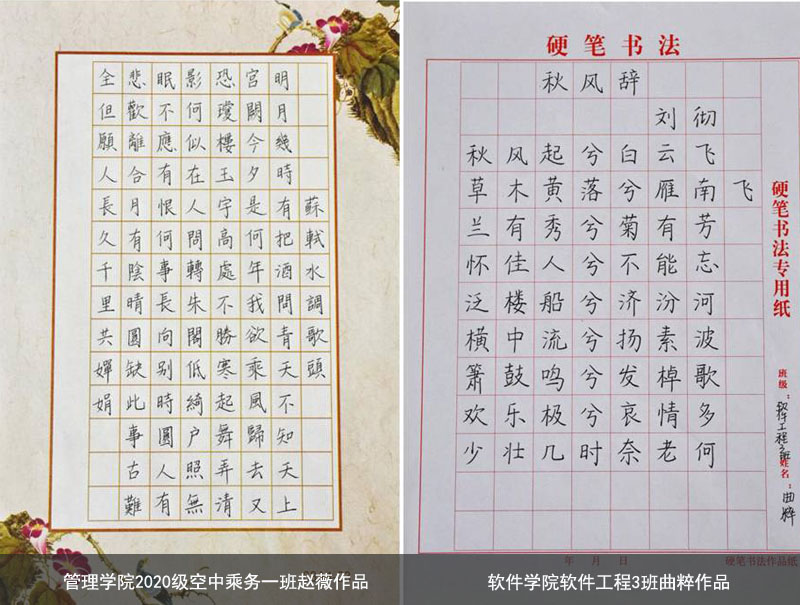 蘇軾水調歌頭
明月幾時有把酒問青天不知天上
宮闕今夕是何年我欲乘風歸去又
恐瓊樓玉宇高處不勝寒起舞弄清
影何似在人間轉朱閣低綺户照無
眠不應有恨何事長向别時圓人有
悲歡離合月有陰晴圓缺此事古難
全但願人長久千里共嬋娟
硬笔书法
秋风辞
刘彻
秋风起兮白云飞
草木黄落兮雁南飞
兰有秀兮菊有芳
怀佳人兮不能忘
泛楼船兮济汾河
横中流兮扬素波
箫鼓鸣兮发棹歌
欢乐极兮哀情多
少壮几时奈老何
硬笔书法专用纸
班级：软件工程3班
姓名：曲粹
年 月 日
硬笔书法作品纸
管理学院2020级空中乘务一班赵薇作品
软件学院软件工程3班曲粹作品